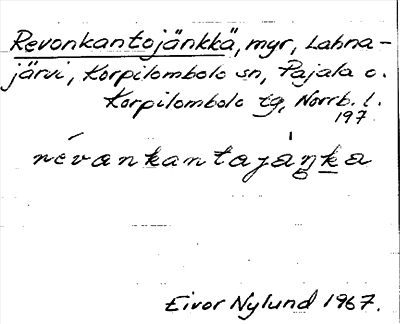 Revonkantojänkkä, myr, Lahna-
järvi, Korpilombolo sn, Pajala o.
Korpilombolo tg, Norrb. l.
197.
révankantajäŋka
Eivor Nylund 1967.